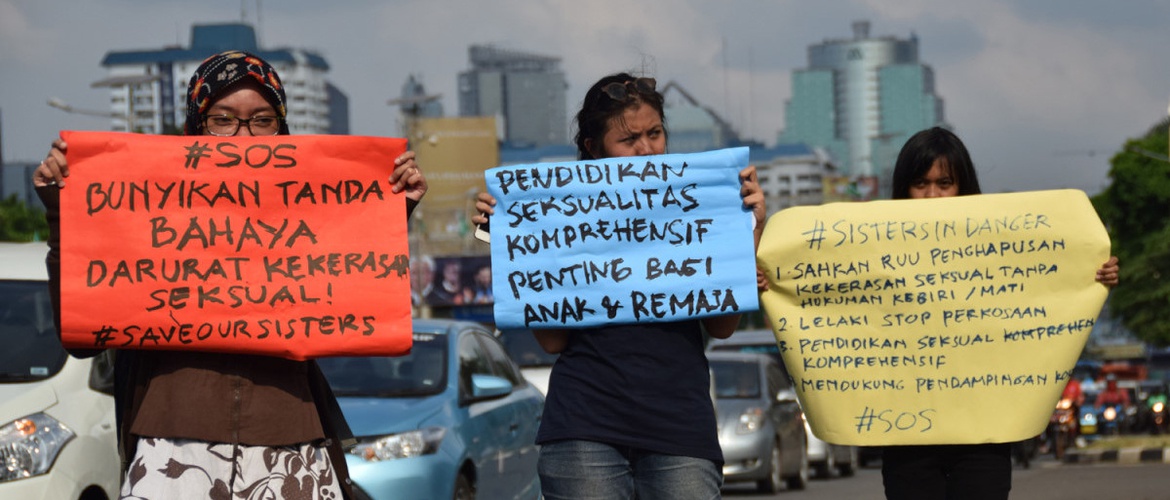 #SOS
BUNYIKAN TANDA
BAHAYA
DARURAT KEKERASAN
SEKSUAL!
#SAVEOURSISTERS
PENDIDIKAN
SEKSUALITAS
KOMPREHENSIF
PENTING BAGI
ANAK & REMAJA
#SISTERSINDANGER
1. SAHKAN RUU PENGHAPUSAN
KEKERASAN SEKSUAL TANPA
HUKUMAN KEBIRI / MATI
2. LELAKI STOP PERKOSAAN
3. PENDIDIKAN SEKSUAL
KOMPREHENSIF
MENDUKUNG PENDAMPINGAN
#SOS